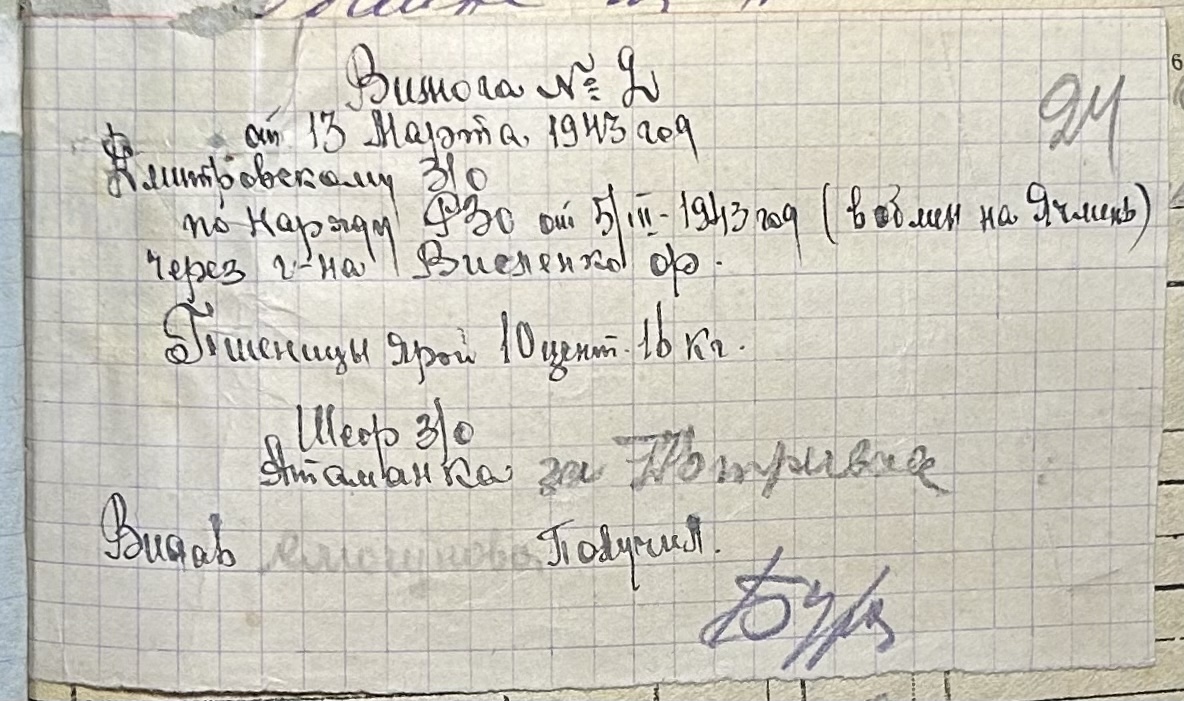 Вимога № 2
24
от 13 Марта 1943 год
Дмитровскому З/О
по наряду РЗО от 5/III-1943 год (в облин на Ячмень)
через г-на Висненко ф.
Пшеницы Ярой 10 цент. 16 кг.
Шеф З/О
Атаманка за
Видав Получил.